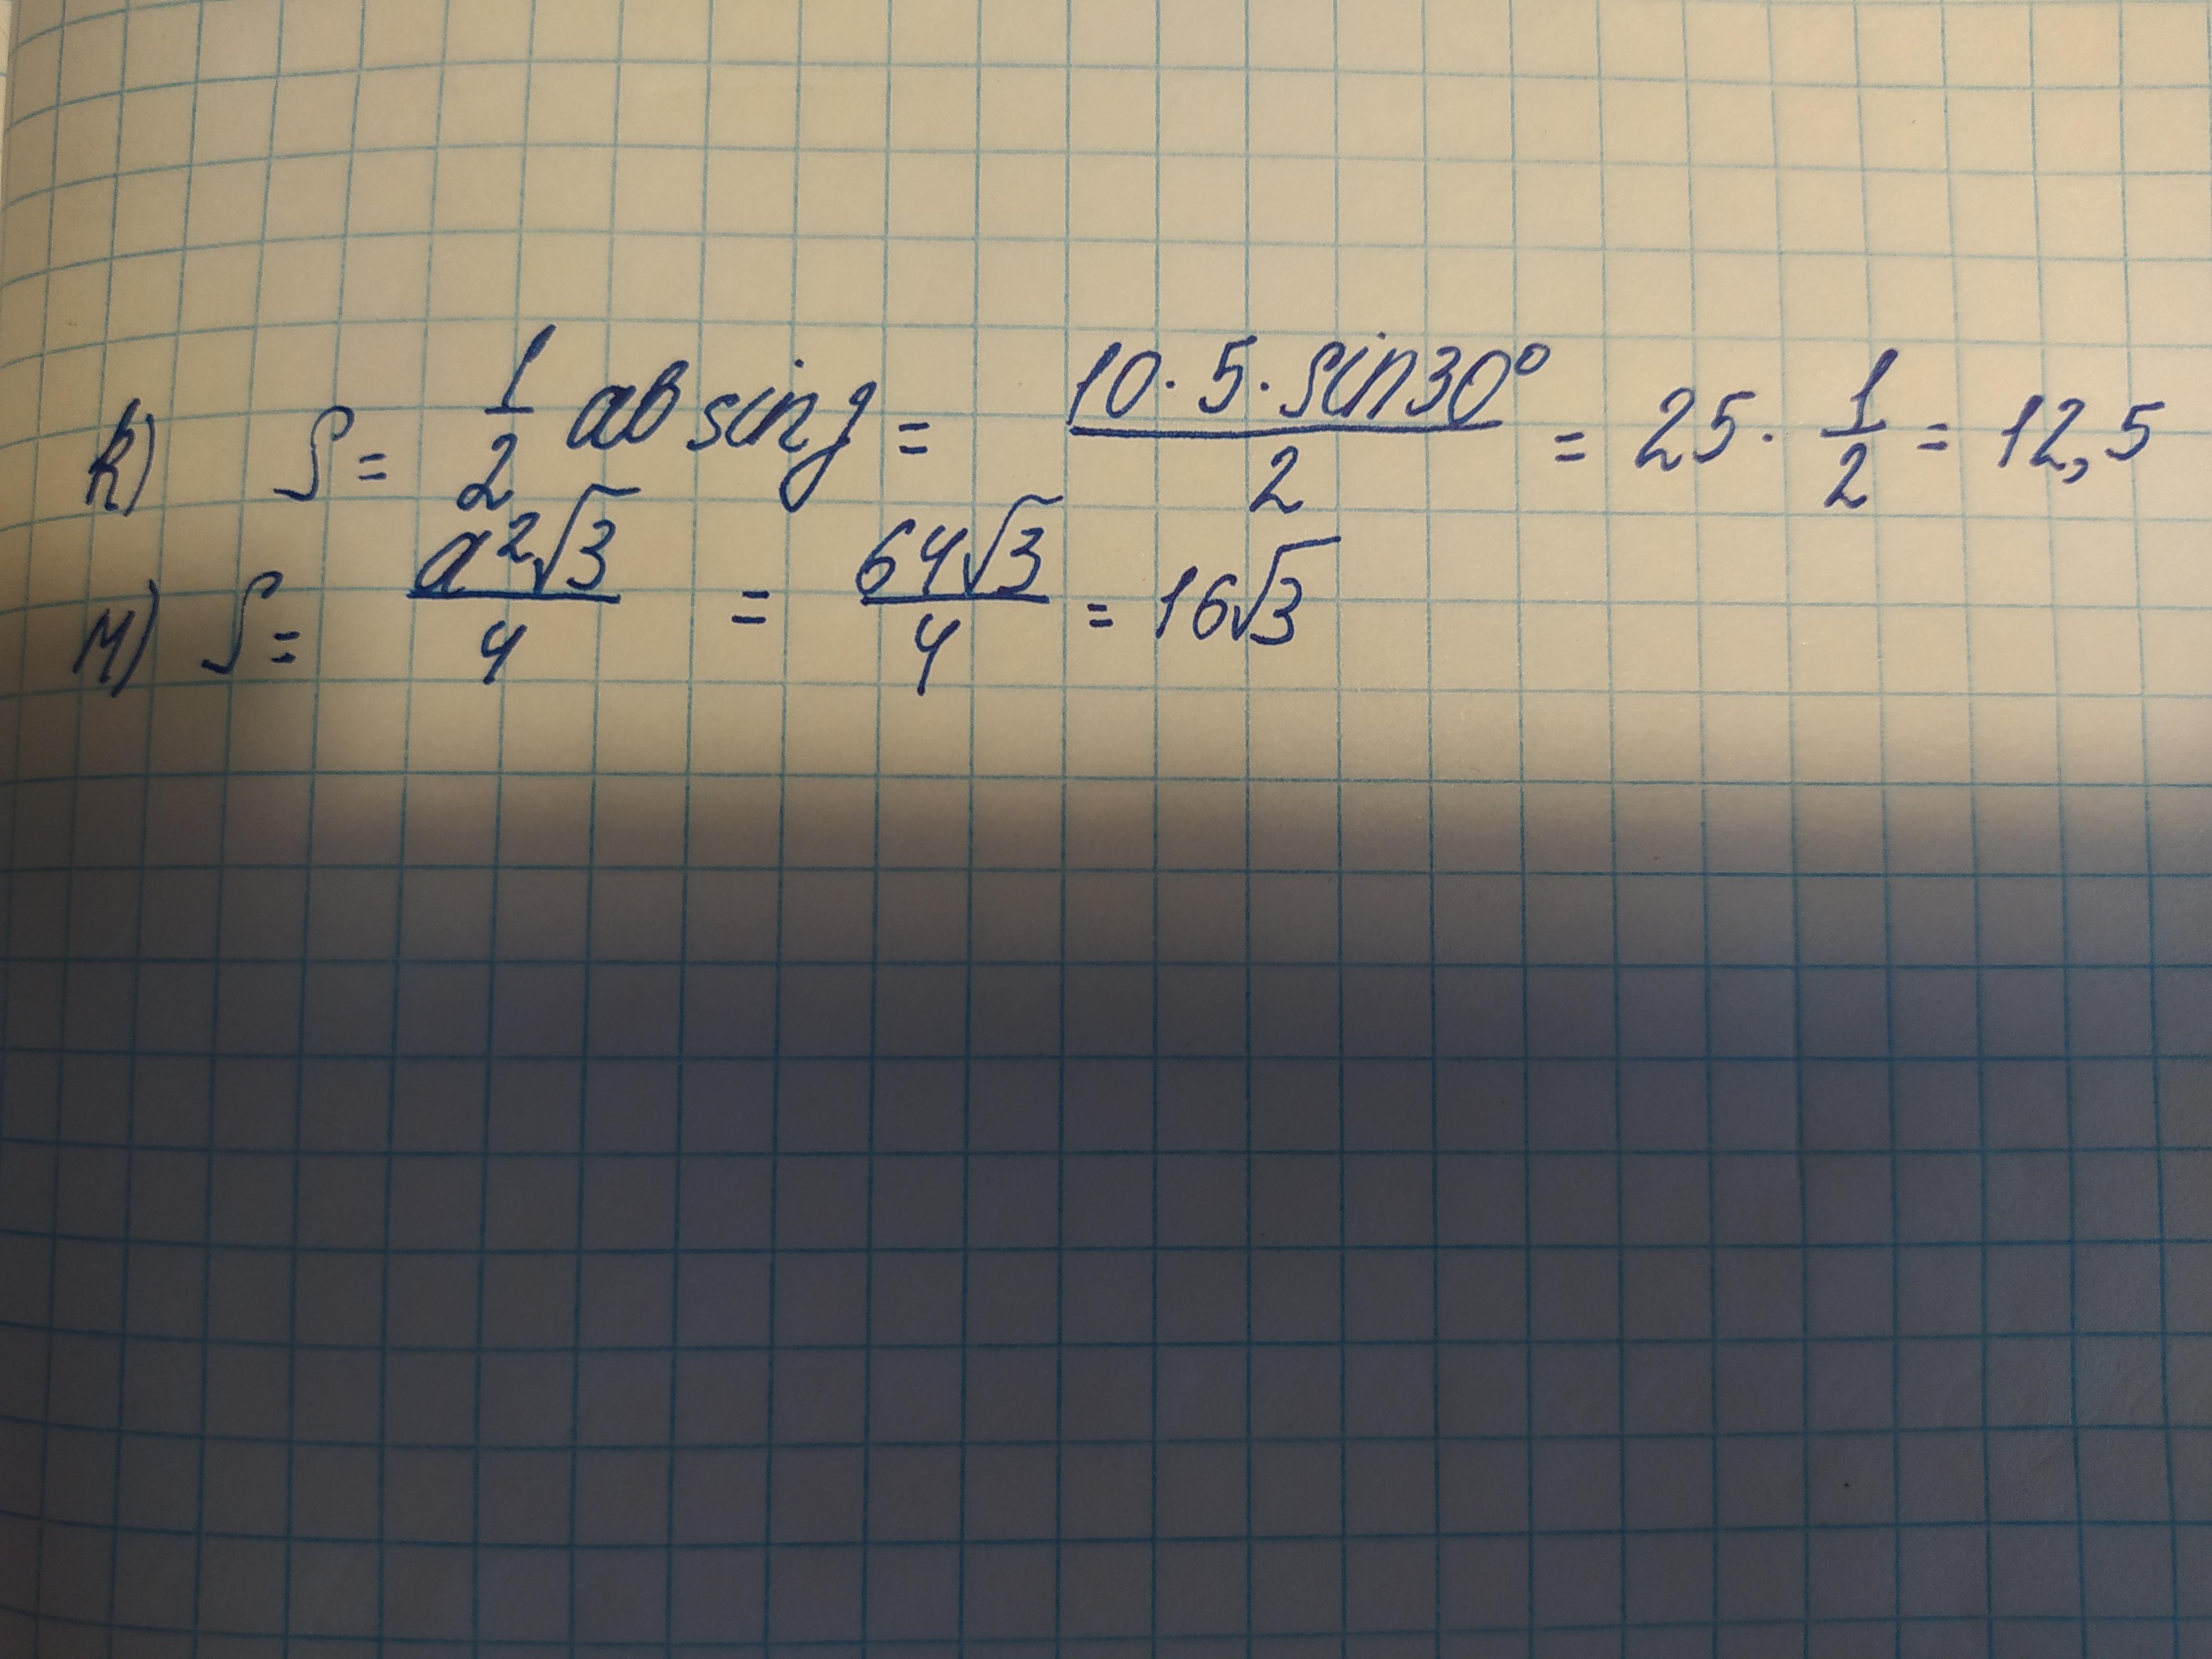 к) S = 1/2 ab sin γ = 10 · 5 · sin30° / 2 = 25 · 1/2 = 12,5
м) S = a²√3 / 4 = 64√3 / 4 = 16√3